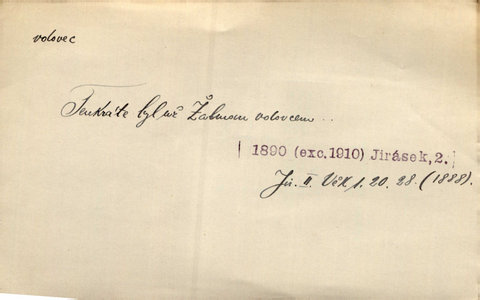 volovec
Tenkráte byl už Žalman volovcem..
1890 (exc.1910) Jirásek,2.
Jir. II. Věk 1. 20. 28. (1888).